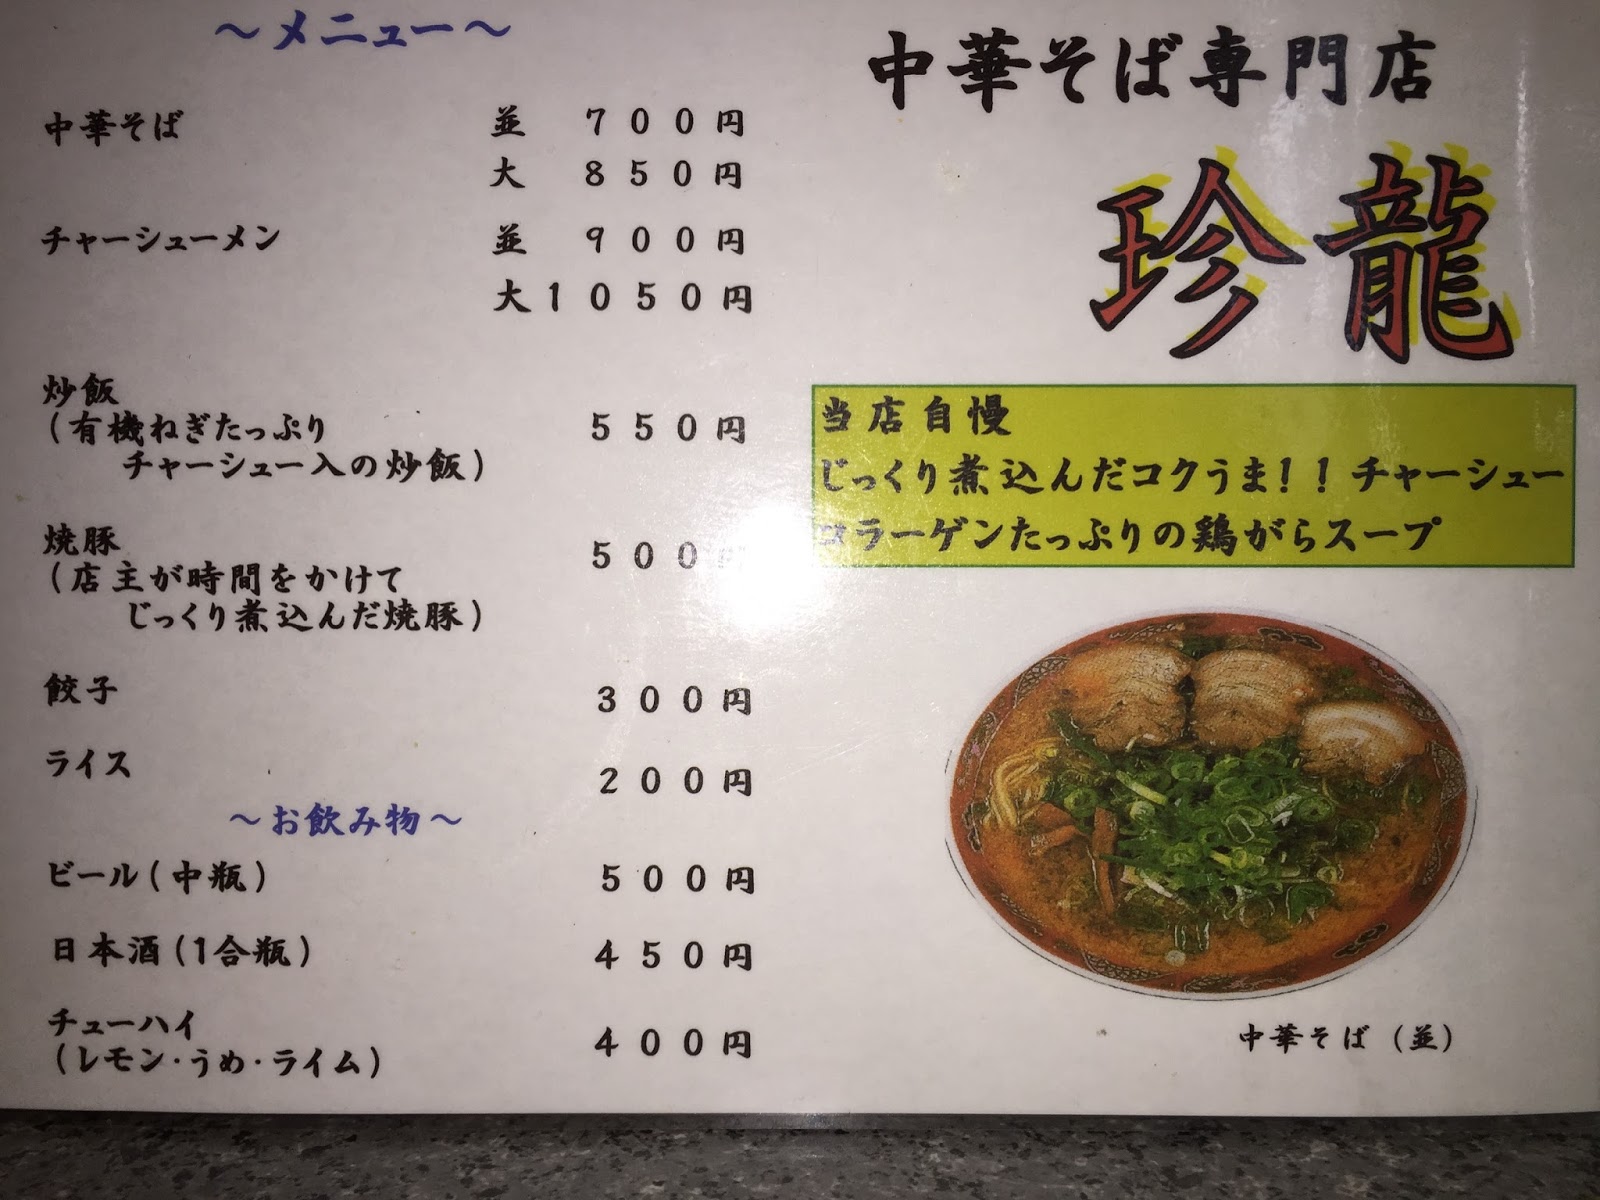 ~メニュー~
中華そば 並 700円
大 850円
チャーシューメン 並 900円
大1050円
炒飯
(有機ねぎたっぷり 550円
チャーシュー入の炒飯)
焼豚
(店主が時間をかけて 500円
じっくり煮込んだ焼豚)
餃子 300円
ライス 200円
~お飲み物~
ビール(中瓶) 500円
日本酒(1合瓶) 450円
チューハイ
(レモン・うめ・ライム) 400円
中華そば専門店
珍龍
当店自慢
じっくり煮込んだコクうま!!チャーシュー
コラーゲンたっぷりの鶏がらスープ
中華そば(並)